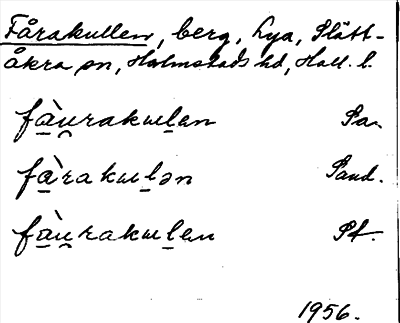 Fårakullen, berg, Lya, Slätt-
åkra sn, Halmstads hd, Hall. l.
fà̲u̯rakɯl̲ən Sa.
fà̲rakɯl̲ən Sand.
fà̲u̯rakɯl̲ən Pf.
1956.